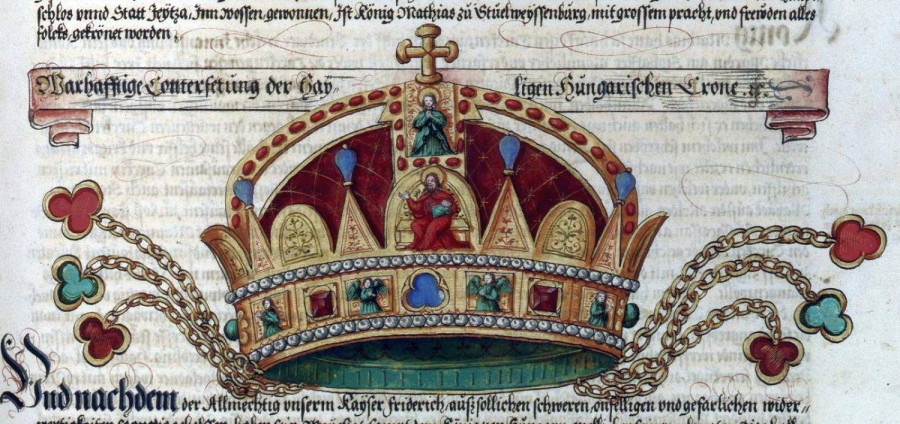 schlos vnnd Statt Jeytza, Jnn wossen, gewonnen, Jst König Mathias zů Stůelweyssenburg, mit grossem pracht, vnd frewden alles
folcks, gekrönet worden.
Warhafftige Conterfetung der Hay„ ligen Hungarischen Crone.
Vnd nachdem der Allmechtig vnserm Kayser friderich, auß sollichen schweren, onfelligen vnd gefarlichen wider„